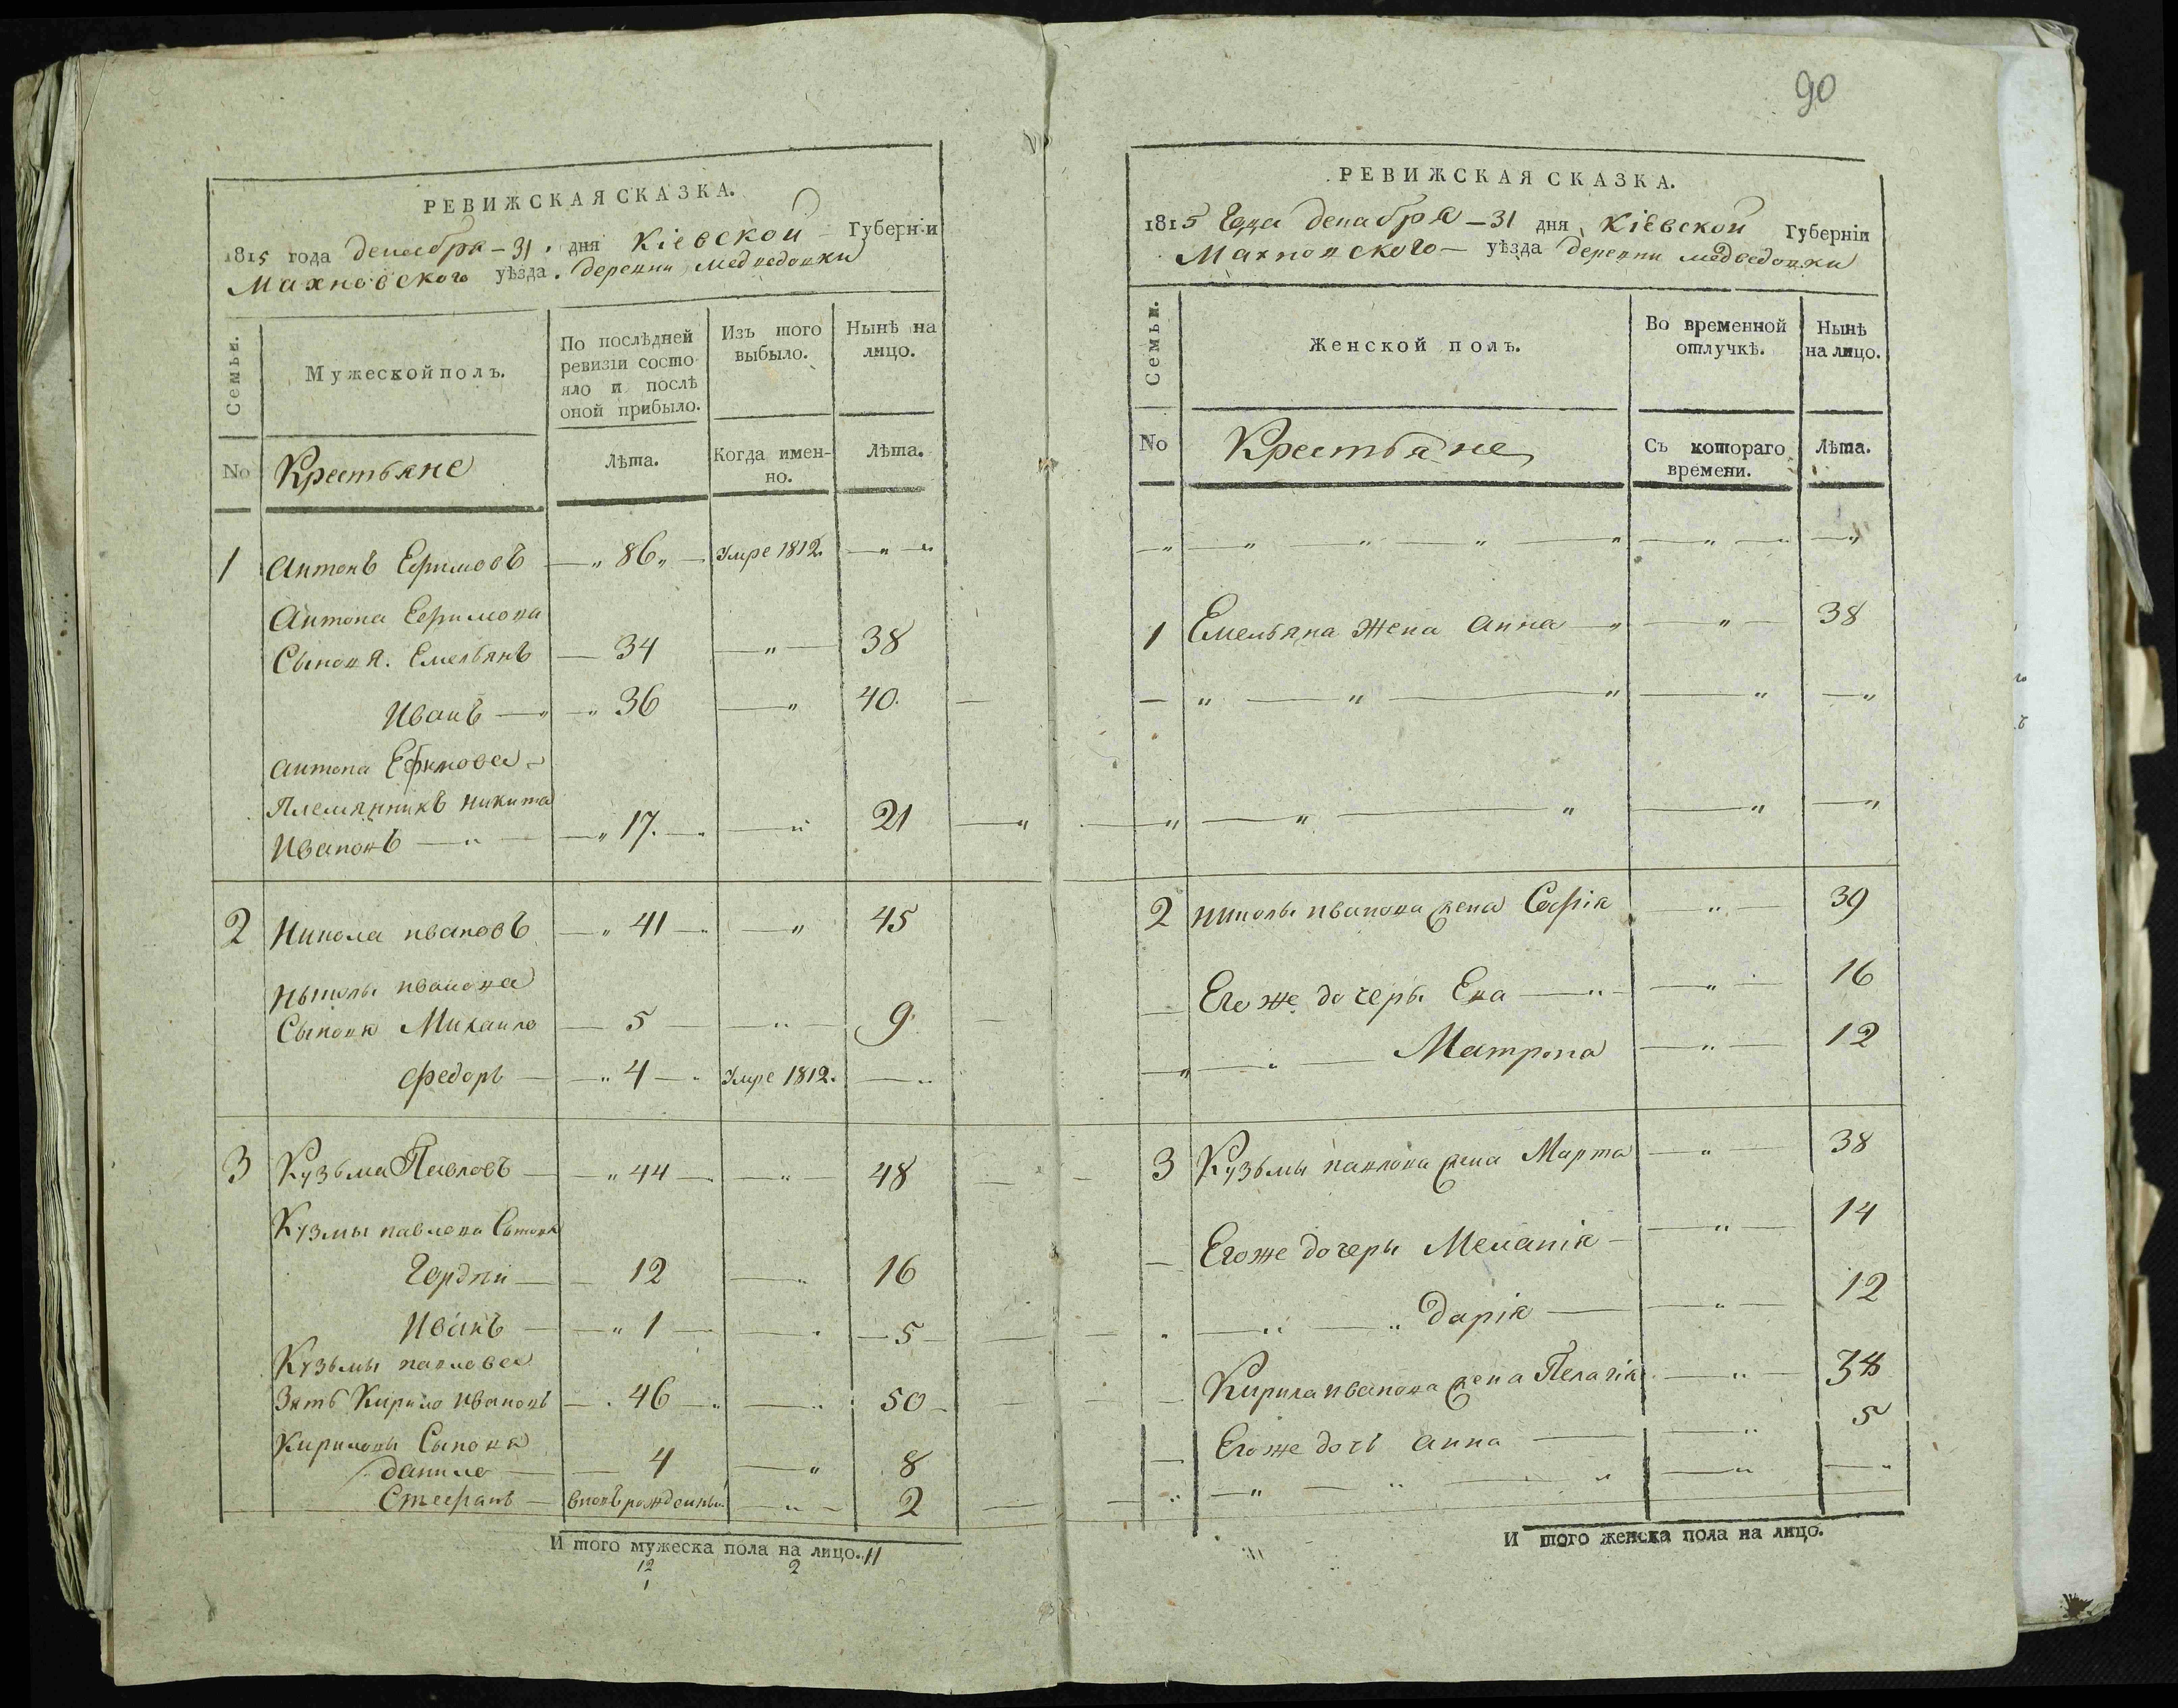 90
РЕВИЖСКАЯ СКАЗКА.
1815 года декабря – 31 . дня Кіевской Губерніи
Махновского уѣзда . деревни Медведовки
Семьи.
Мужеской полъ.
По послѣдней
ревизіи состо-
яло и послѣ
оной прибыло.
Изъ того
выбыло.
Нынѣ на
лицо.
No
Крестьяне
Лѣта.
Когда имен-
но.
Лѣта.
1 Антонъ Ефимовъ — „ 86 „ — Умре 1812. — „ — „
Антона Ефимова
Сыновя. Емельянъ — 34 — „ — 38
Иванъ — „ — „ 36 — „ 40. —
Антона Ефимова –
Племянникъ Никита
Ивановъ — „ — — „ 17. — „ — „ 21 — „
2 Никола ивановъ — „ 41 — „ — „ 45
Николы иванова
Сыновя Михаило — 5 — — „ — 9.
Федоръ — — „ 4 — „ Умре 1812. — „
3 Кузьма Павловъ — — „ 44 — „ — „ — 48 —
Кузмы павлова Сыновя
Гордѣи — — 12 — „ 16
Иванъ — — „ 1 — — „ — 5 — —
Кузьмы павлова
Зять Кирило Ивановъ — . 46 — „ — „ 50 — —
Кириловы Сыновя
данило — — 4 — „ 8
Стефанъ — вновь рожденный — „ – 2 —
И того мужеска пола на лицо. 11
12 2
1
РЕВИЖСКАЯ СКАЗКА.
1815 Года декабря – 31 дня Кіевской Губерніи
Махновского — уѣзда деревни медведовки
Семьи.
Женской полъ.
Во временной
отлучкѣ.
Нынѣ
на лицо.
No
Крестьяне
Съ котораго
времени.
Лѣта.
— „ — „ — „ — „ — „ — „ — „ — „
1 Емельяна жена анна — „ — „ — 38
— „ — „ — „ — „ — „
— „ — „ — „ — „ — „
2 николы иванова жена Софія — „ — 39
— Его же дочеры Ева — „ — — „ — 16
— „ — „ — Матрона — „ — 12
3 Кузьмы павлова жена Марта — „ — 38
— Егоже дочеры Меланія — — „ — 14
„ — „ — „ Дарія — — „ — 12
— Кирила иванова жена Пелагія — „ — 38
— Егоже дочь анна — — „ 5
„ — „ — „ — „ — „ — „
И того женска пола на лицо.